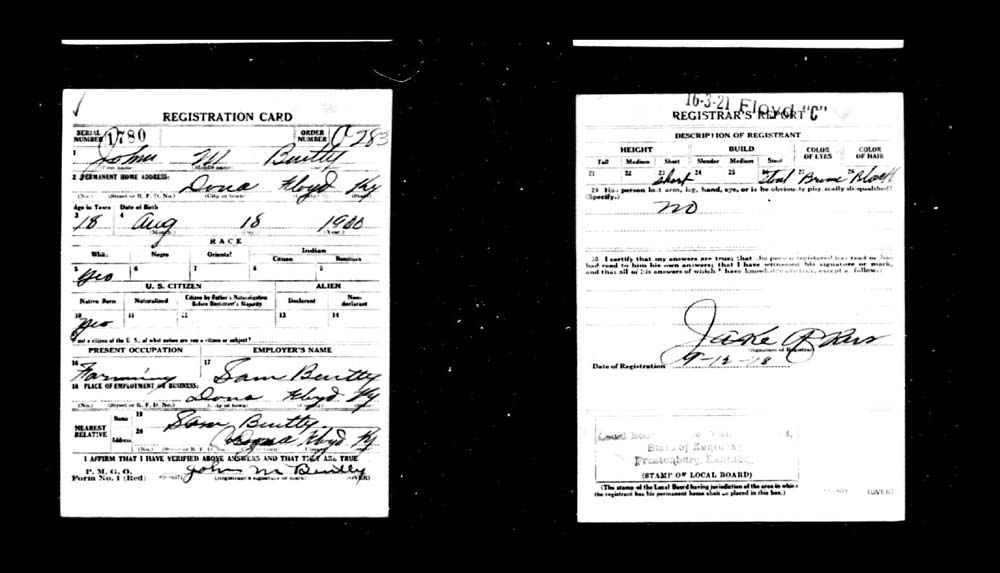 REGISTRATION CARD
SERIAL NUMBER 1780 ORDER NUMBER 283
1 John M Bentley
First name Middle name Last
2 PERMANENT HOME ADDRESS:
Dona Floyd Ky
(No.) (Street or R. F. D. No.) (City or town) (County) (State)
Age in Years Date of Birth
3 18 4 Aug 18 1900
(Month.) (Day.) (Year.)
RACE
White Negro Oriental Indian
Citizen Noncitizen
5 Yes 6 7 8 9
U. S. CITIZEN ALIEN
Native Born Naturalized Citizen by Father's Naturalization Before Registrant's Majority Declarant Non-declarant
10 Yes 11 12 13 14
If not a citizen of the U. S., of what nation are you a citizen or subject?
PRESENT OCCUPATION EMPLOYER'S NAME
16 Farming 17 Sam Bentley
18 PLACE OF EMPLOYMENT OR BUSINESS:
Dona Floyd Ky
(No.) (Street or R. F. D. No.) (City or town) (County)
NEAREST RELATIVE Name 19 Sam Bentley
Address 20 Dona Floyd Ky
(No.) (Street or R. F. D. No.) (City or town) (County) (State)
I AFFIRM THAT I HAVE VERIFIED ABOVE ANSWERS AND THAT THEY ARE TRUE
P. M. G. O.
Form No. 1 (Red) John M Bentley
(Registrant's signature or mark) (OVER)
16-3-21 Floyd "C"
REGISTRAR'S REPORT
DESCRIPTION OF REGISTRANT
HEIGHT BUILD COLOR OF EYES COLOR OF HAIR
Tall Medium Short Slender Medium Stout
21 22 23 Short 24 25 26 Stout 27 Brown 28 Black
29 Has person lost arm, leg, hand, eye, or is he obviously physically disqualified?
(Specify.)
no
30 I certify that my answers are true; that the person registered has read or has
had read to him his own answers; that I have witnessed his signature or mark,
and that all of his answers of which I have knowledge are true, except as follows:
(Signature of Registrar)
Date of Registration 9-12-18
State of Kentucky
Prestonsburg, Kentucky
(STAMP OF LOCAL BOARD)
(The stamp of the Local Board having jurisdiction of the area in which
the registrant has his permanent home shall be placed in this box.)
(OVER)